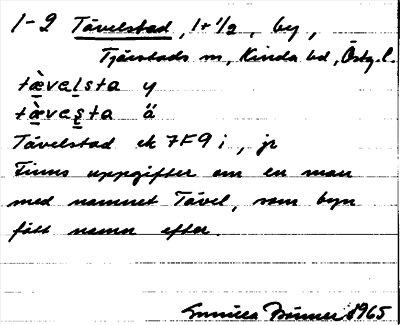 1-2 Tävelstad, 1+1/2, by,
Tjärstads sn, Kinda hd, Östg. l.
tæ̀velsta y
tæ̀vesta ä
Tävelstad ek 7F9i, jr
Finns uppgifter om en man
med namnet Tävel, som byn
fått namn efter.
Gunilla 1965